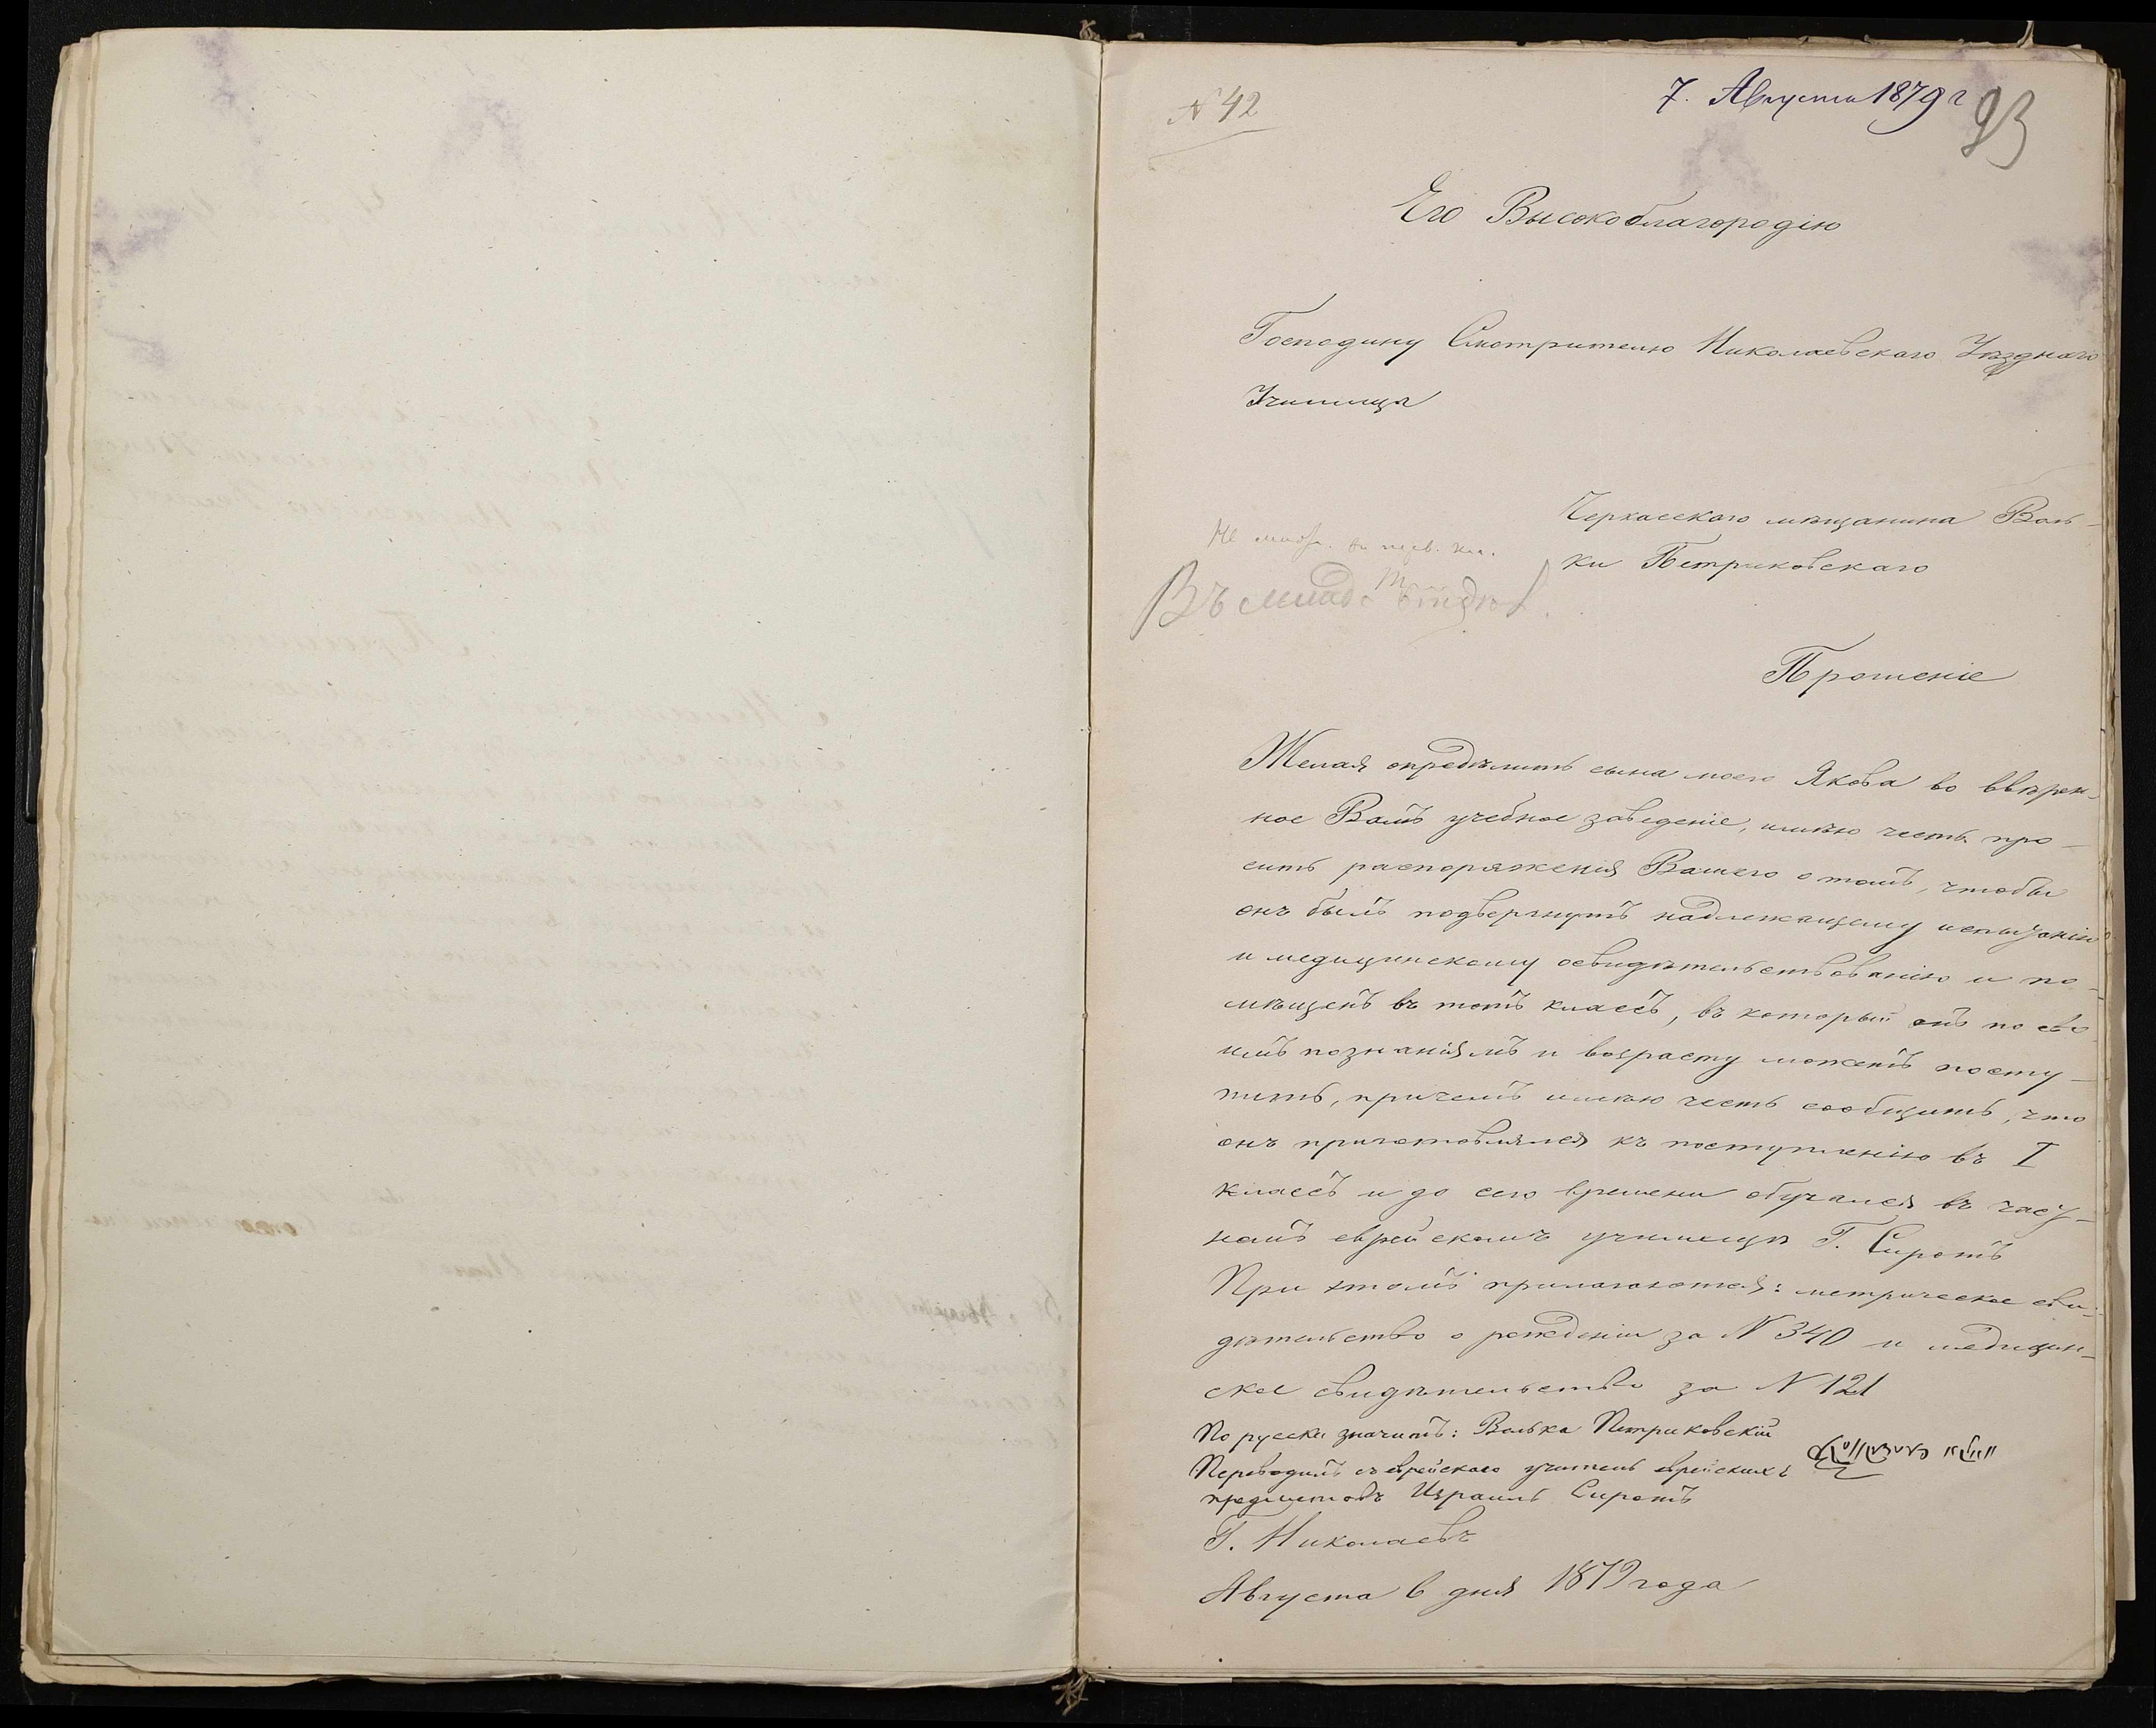 N 42
7. Августа 1879 г
93
Его Высокоблагородію
Господину Смотрителю Николаевскаго Уѣзднаго
Училища
Черкасскаго мѣщанина Воль-
ки Петриковскаго
Не
Въ младш отдѣл.
Прошеніе
Желая опредѣлить сына моего Якова во ввѣрен-
ное Вамъ учебное заведеніе, имѣю честь про-
сить распоряженія Вашего о томъ, чтобы
онъ былъ подвергнутъ надлежащему испытанію
и медицинскому освидѣтельствованію и по-
мѣщенъ въ тотъ классъ, въ который онъ по сво
имъ познаніямъ и возрасту можетъ посту-
пить, причемъ имѣю честь сообщить, что
онъ приготовлялся къ поступленію въ I
классъ и до сего времени обучался въ част-
номъ еврейскомъ училищѣ Г. Сиротъ
При этомъ прилагаются: метрическое сви-
дѣтельство о рожденіи за N 340 и медицин-
ское свидѣтельство за N 121
По русски значитъ: Волька Петриковскій
Переводилъ съ еврейскаго учитель еврейскихъ
предметовъ Израиль Сиротъ
Г. Николаевъ
Августа 6 дня 1879 года